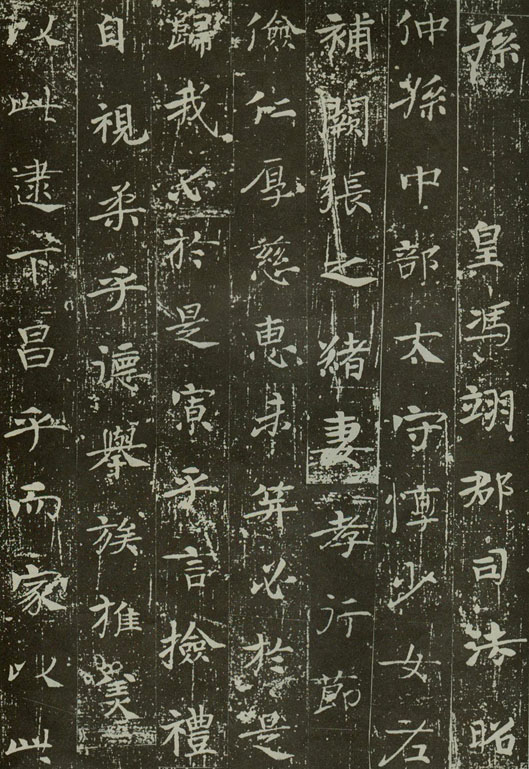 孫 皇馮翊郡司法昭
仲孫中部太守愽少女右
補闕張之緒妻孝行節
儉仁厚慈惠未笄必於是
歸我必於是寅乎言撿禮
自視柔乎德舉族推美
以此逮下昌乎而家以此